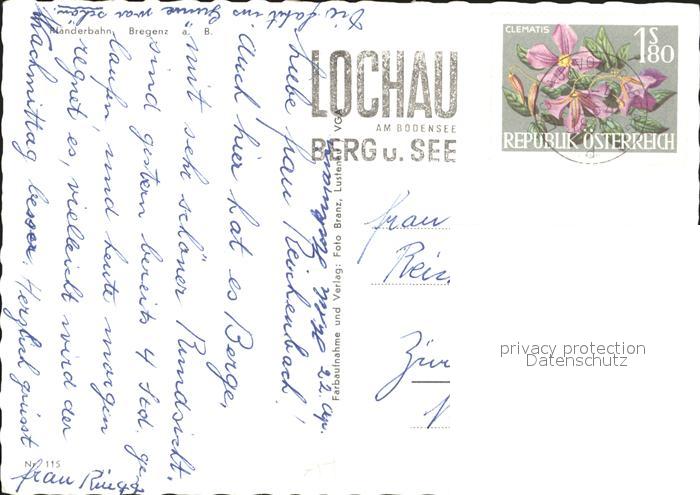 Pfänderbahn Bregenz a. B.
LOCHAU
AM BODENSEE
BERG u. SEE
CLEMATIS
1S80
REPUBLIK ÖSTERREICH
22. Ap.
Liebe Frau Reichenbach!
Auch hier hat es Berge,
mit sehr schöner Rundsicht.
sind gestern bereits 4 Std. ge-
laufen, und heute morgen
regnet es, vielleicht wird der
Nachmittag besser. Herzlich grüsst
Frau
Die Fahrt ins Grüne war schön
Farbaufnahme und Verlag: Foto Branz, Lustenau
Nr. 115
Frau
Rei
Zür
privacy protection
Datenschutz